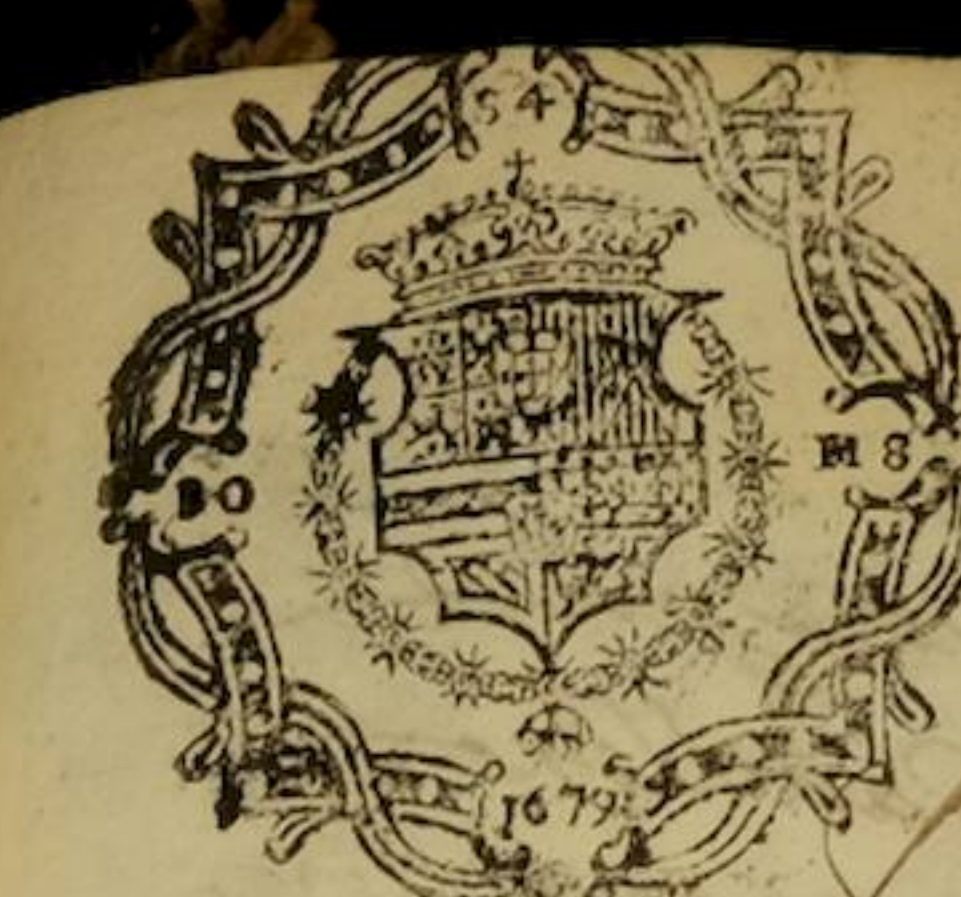 54
BO
MS
1679